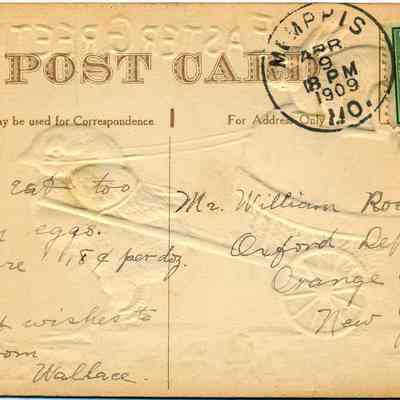 EASTER GREET
POST CARD
MEMPHIS
APR
9
8 PM
1909
MO.
ay be used for Correspondence
For Address Only
eat too
eggs.
18¢ per doz.
wishes to
Wallace.
Mr. William
Orford
Orange
New